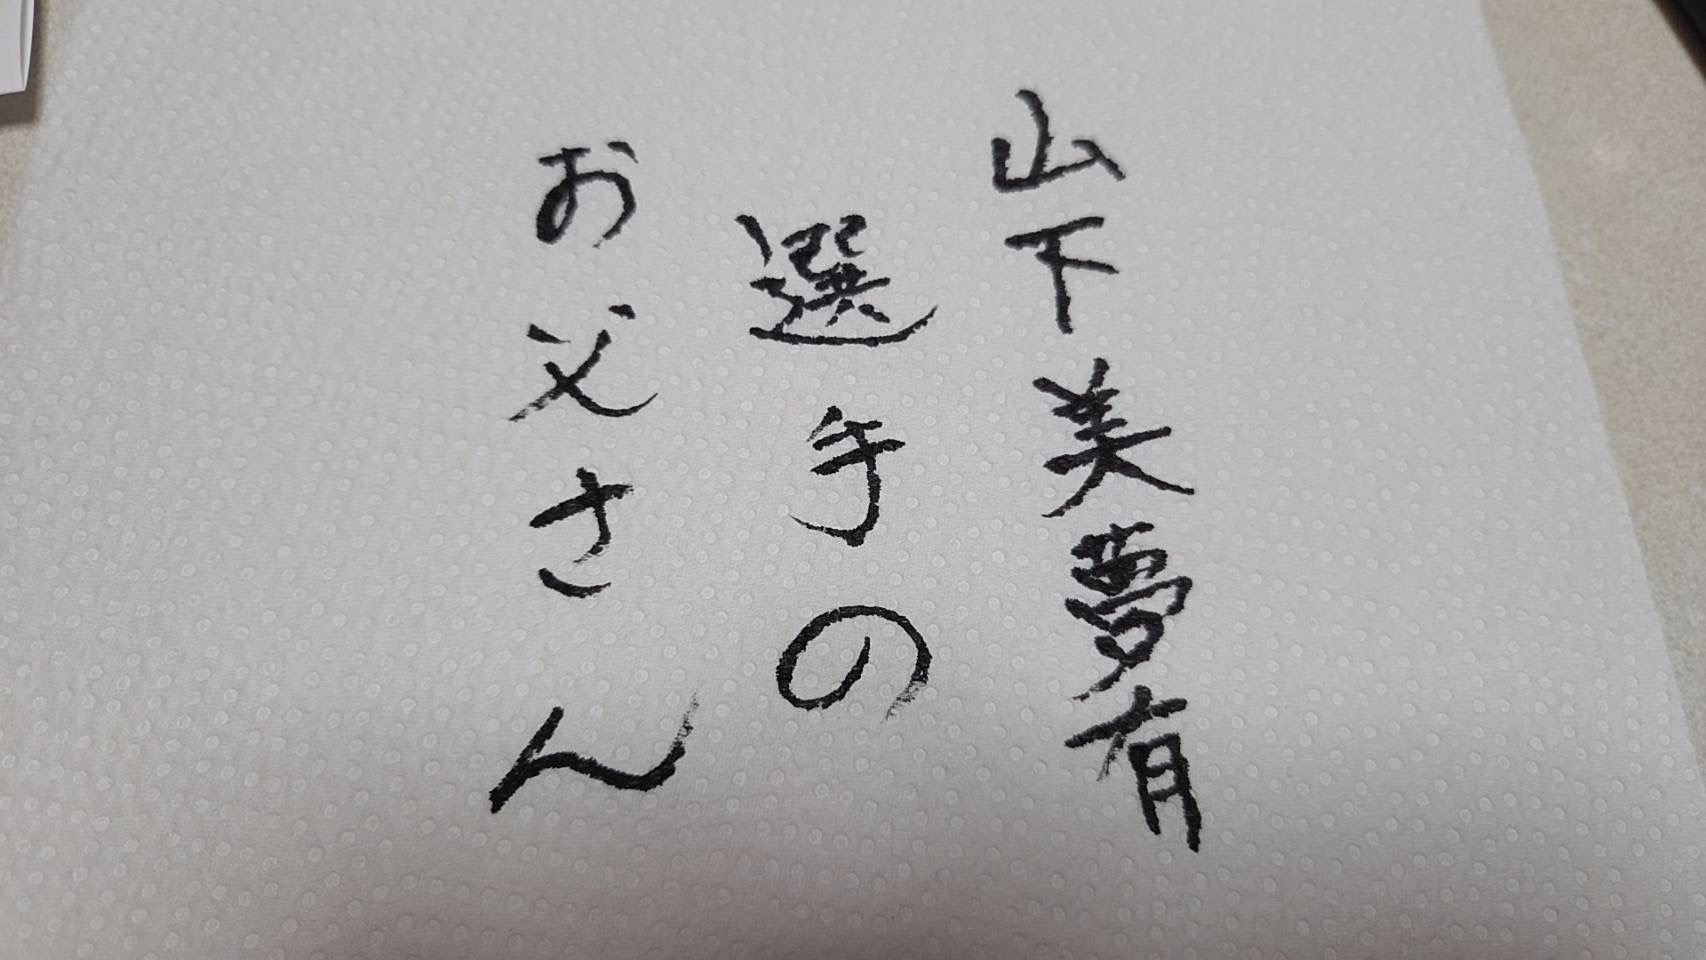 山下美夢有
選手の
お父さん